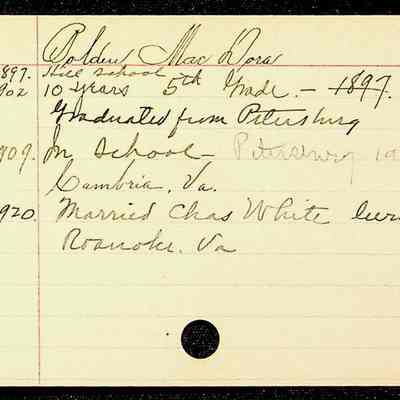 Bolden Mae Dora
897. Hill School
902 10 years 5th Grade. - 1897.
Graduated from Petersburg
909. In School - Petersburg 19
Cambria, Va.
920. Married Chas White
Roanoke, Va